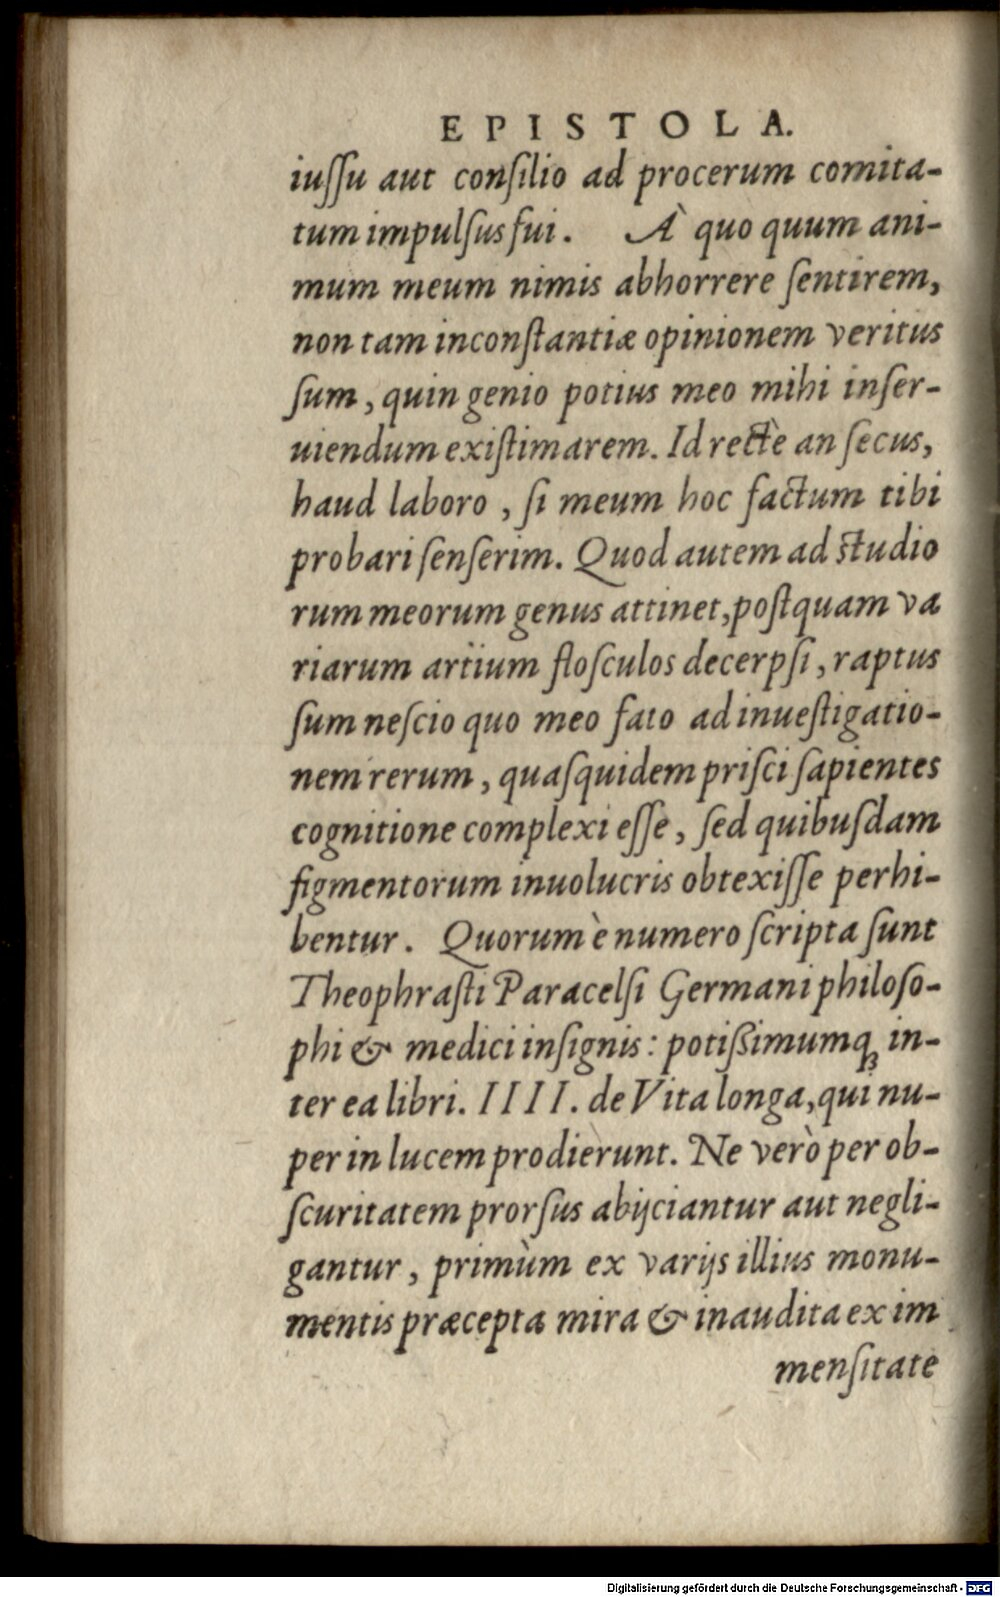 EPISTOLA.
iuſſu aut conſilio ad procerum comita-
tum impulſus fui. À quo quum ani-
mum meum nimis abhorrere ſentirem,
non tam inconſtantiæ opinionem veritus
ſum, quin genio potius meo mihi inſer-
uiendum exiſtimarem. Id rectè an ſecus,
haud laboro, ſi meum hoc factum tibi
probari ſenſerim. Quod autem ad ſtudio
rum meorum genus attinet, poſtquam va
riarum artium floſculos decerpſi, raptus
ſum neſcio quo meo fato ad inueſtigatio-
nem rerum, quaſquidem priſci ſapientes
cognitione complexi eſſe, ſed quibuſdam
figmentorum inuolucris obtexiſſe perhi-
bentur. Quorum è numero ſcripta ſunt
Theophraſti Paracelſi Germani philoſo-
phi & medici inſignis: potißimumq́ꝫ in-
ter ea libri. IIII. de Vita longa, qui nu-
per in lucem prodierunt. Ne verò per ob-
ſcuritatem prorſus abijciantur aut negli-
gantur, primùm ex varijs illius monu-
mentis præcepta mira & inaudita ex im
menſitate
Digitalisierung gefördert durch die Deutsche Forschungsgemeinschaft - DFG